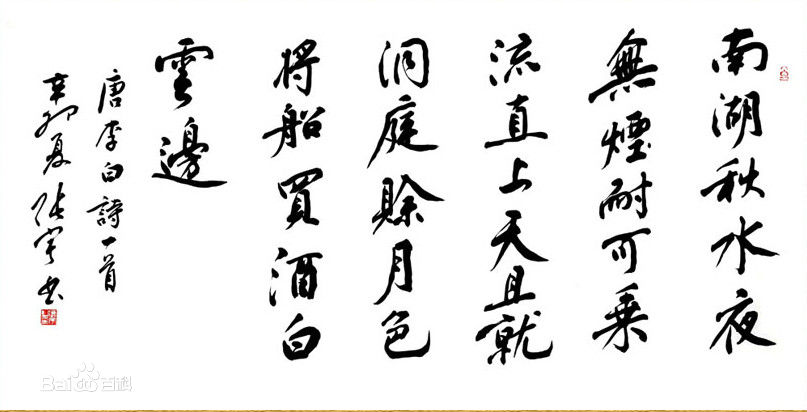 南湖秋水夜
無煙耐可乘
流直上天且就
洞庭賒月色
將船買酒白
雲邊
唐李白詩一首
辛卯夏张书
Bai百科